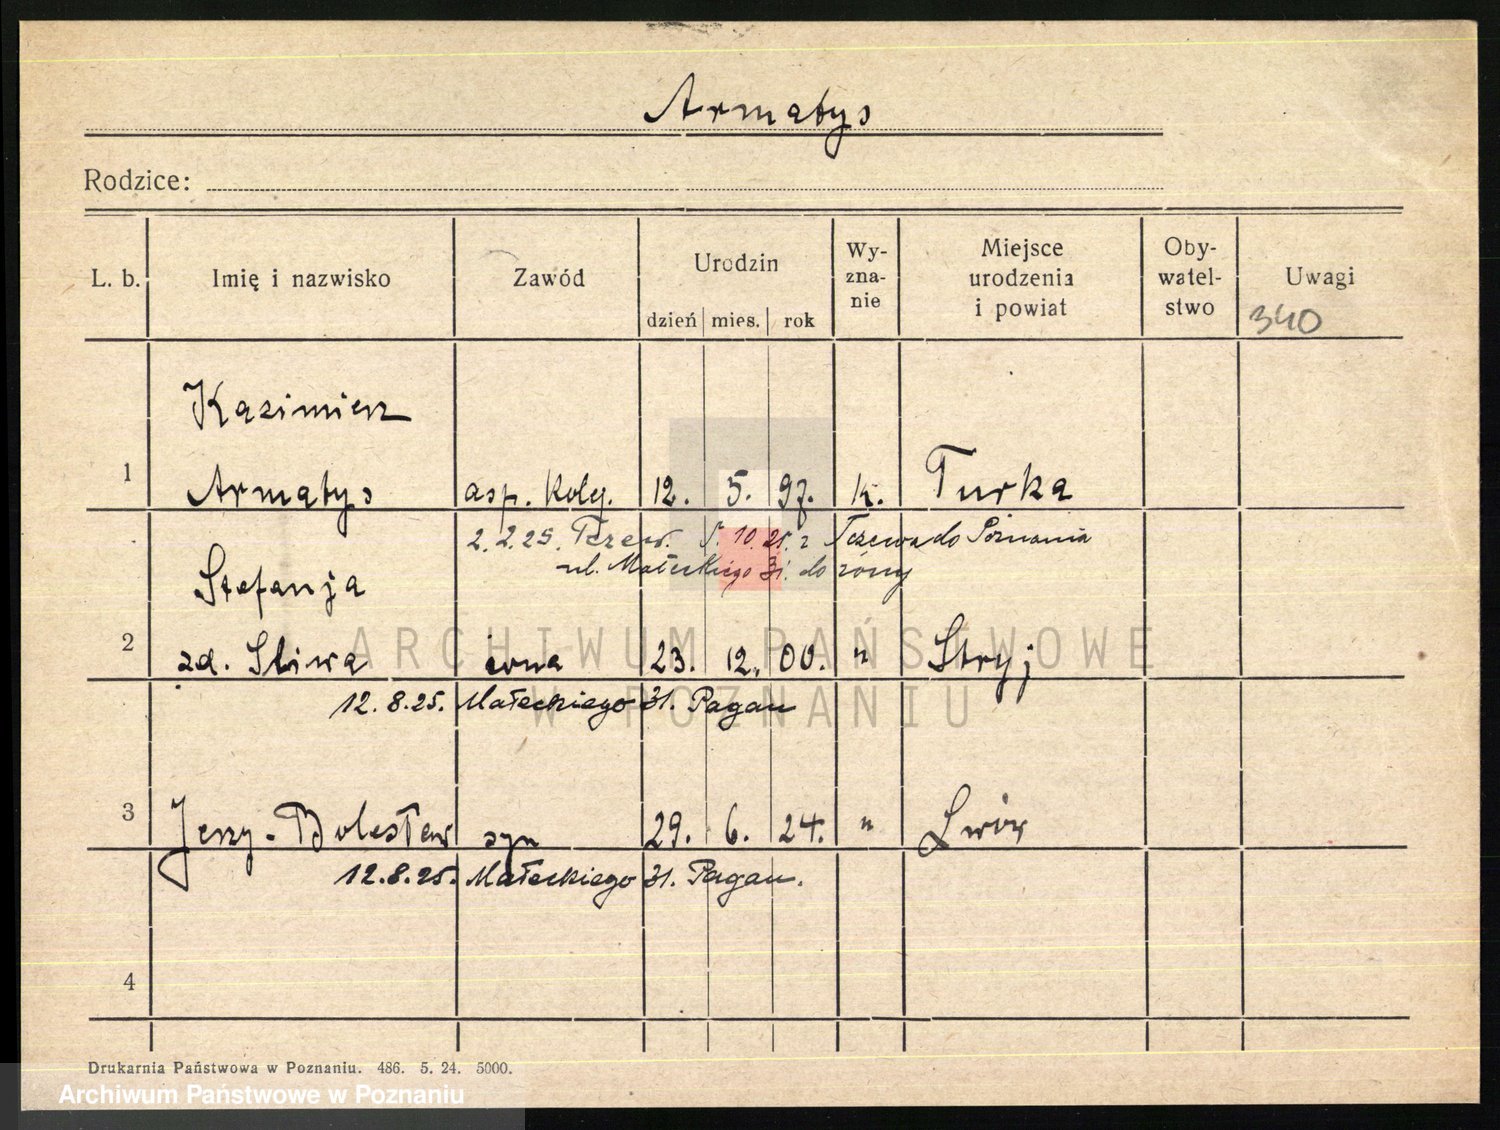 Armatys
Rodzice:
L. b. Imię i nazwisko Zawód Urodzin dzień mies. rok Wy-zna-nie Miejsce urodzenia i powiat Oby-watel-stwo Uwagi
340
Kazimierz
1 Armatys asp. Kolej. 12. 5. 97. k. Turka
2.2.25. Tczew. 5.10.25. z Tczewa do Poznania
ul. Małeckiego 31. do żony
Stefanja
2 zd. Sliwa żona 23. 12. 00. " Stryj
12.8.25. Małeckiego 31. Pagan
3 Jerzy-Bolesław syn 29. 6. 24. " Lwów
12.8.25. Małeckiego 31. Pagan.
4
Drukarnia Państwowa w Poznaniu. 486. 5. 24. 5000.
ARCHIWUM PAŃSTWOWE
W POZNANIU
Archiwum Państwowe w Poznaniu